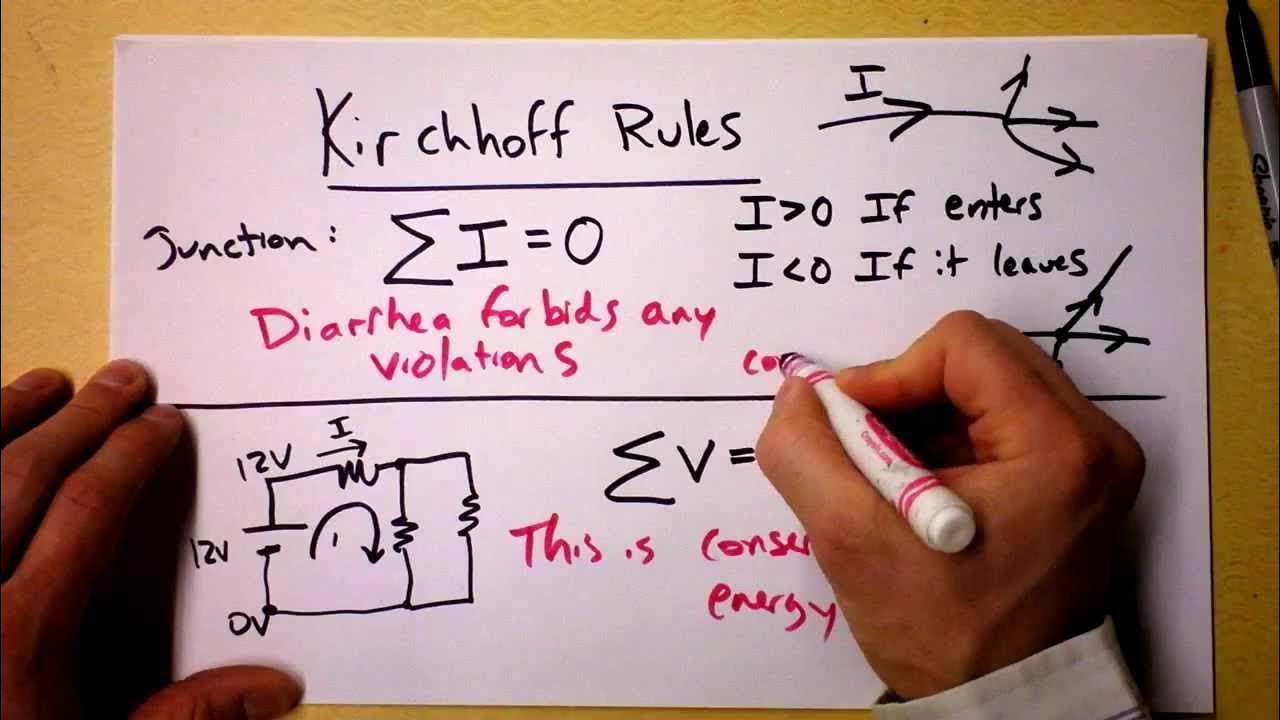 Kirchhoff Rules
I
Junction: ΣI=0
I>0 If enters
I<0 If it leaves
Diarrhea forbids any
violations
co
I
12V
12V
0V
1
ΣV=
This is conser
energy
Sharpie
Crayola.com